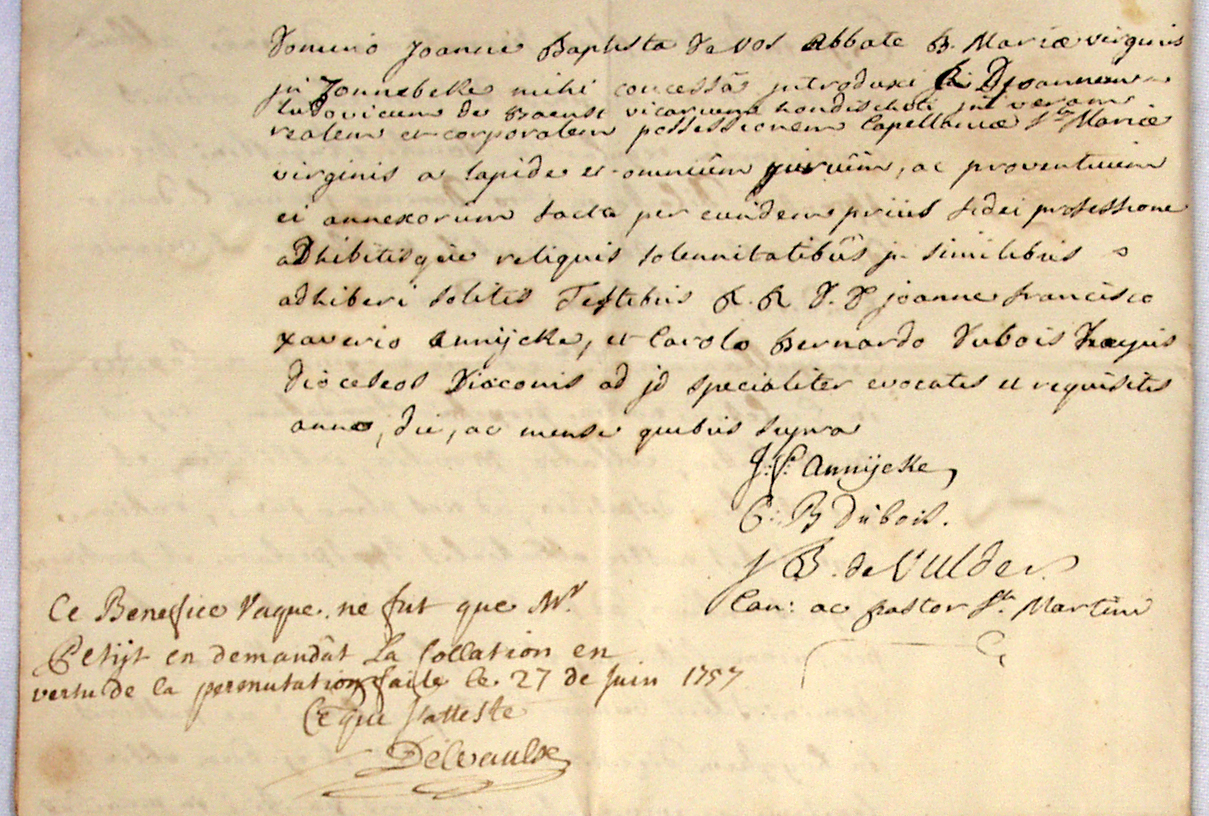 Domino Joanne Baptista de vos Abbate B. Mariæ virginis
jn Zonnebeke mihi concessâ jntroduxi R. D. joannem
ludovicum de Baenst vicarium hondischoti jn veram
realem et corporalem possessionem Capellaniæ Stæ Mariæ
virginis a lapide et omnium jurium, ac proventuum
ei annexorum facta per eundem prius fidei professione
adhibitisque reliquis solemnitatibus jn similibus
adhiberi solitis Testibus R. R. D. D joanne francisco
xaverio Annijcke, et Carolo Bernardo Dubois
dioceseos Diaconis ad jd specialiter evocatis et requisitis
anno, die, ac mense quibus supra
Annijcke
C: B Dubois.
J B. de Vulder.
Can: ac pastor Sti Martini
Ce Benefice Vaque. ne fut que Mr
Petijt en demandât La Collation en
vertu de la permutation faite le 27 de Juin 1757
Ce que J'atteste
Delvaulx